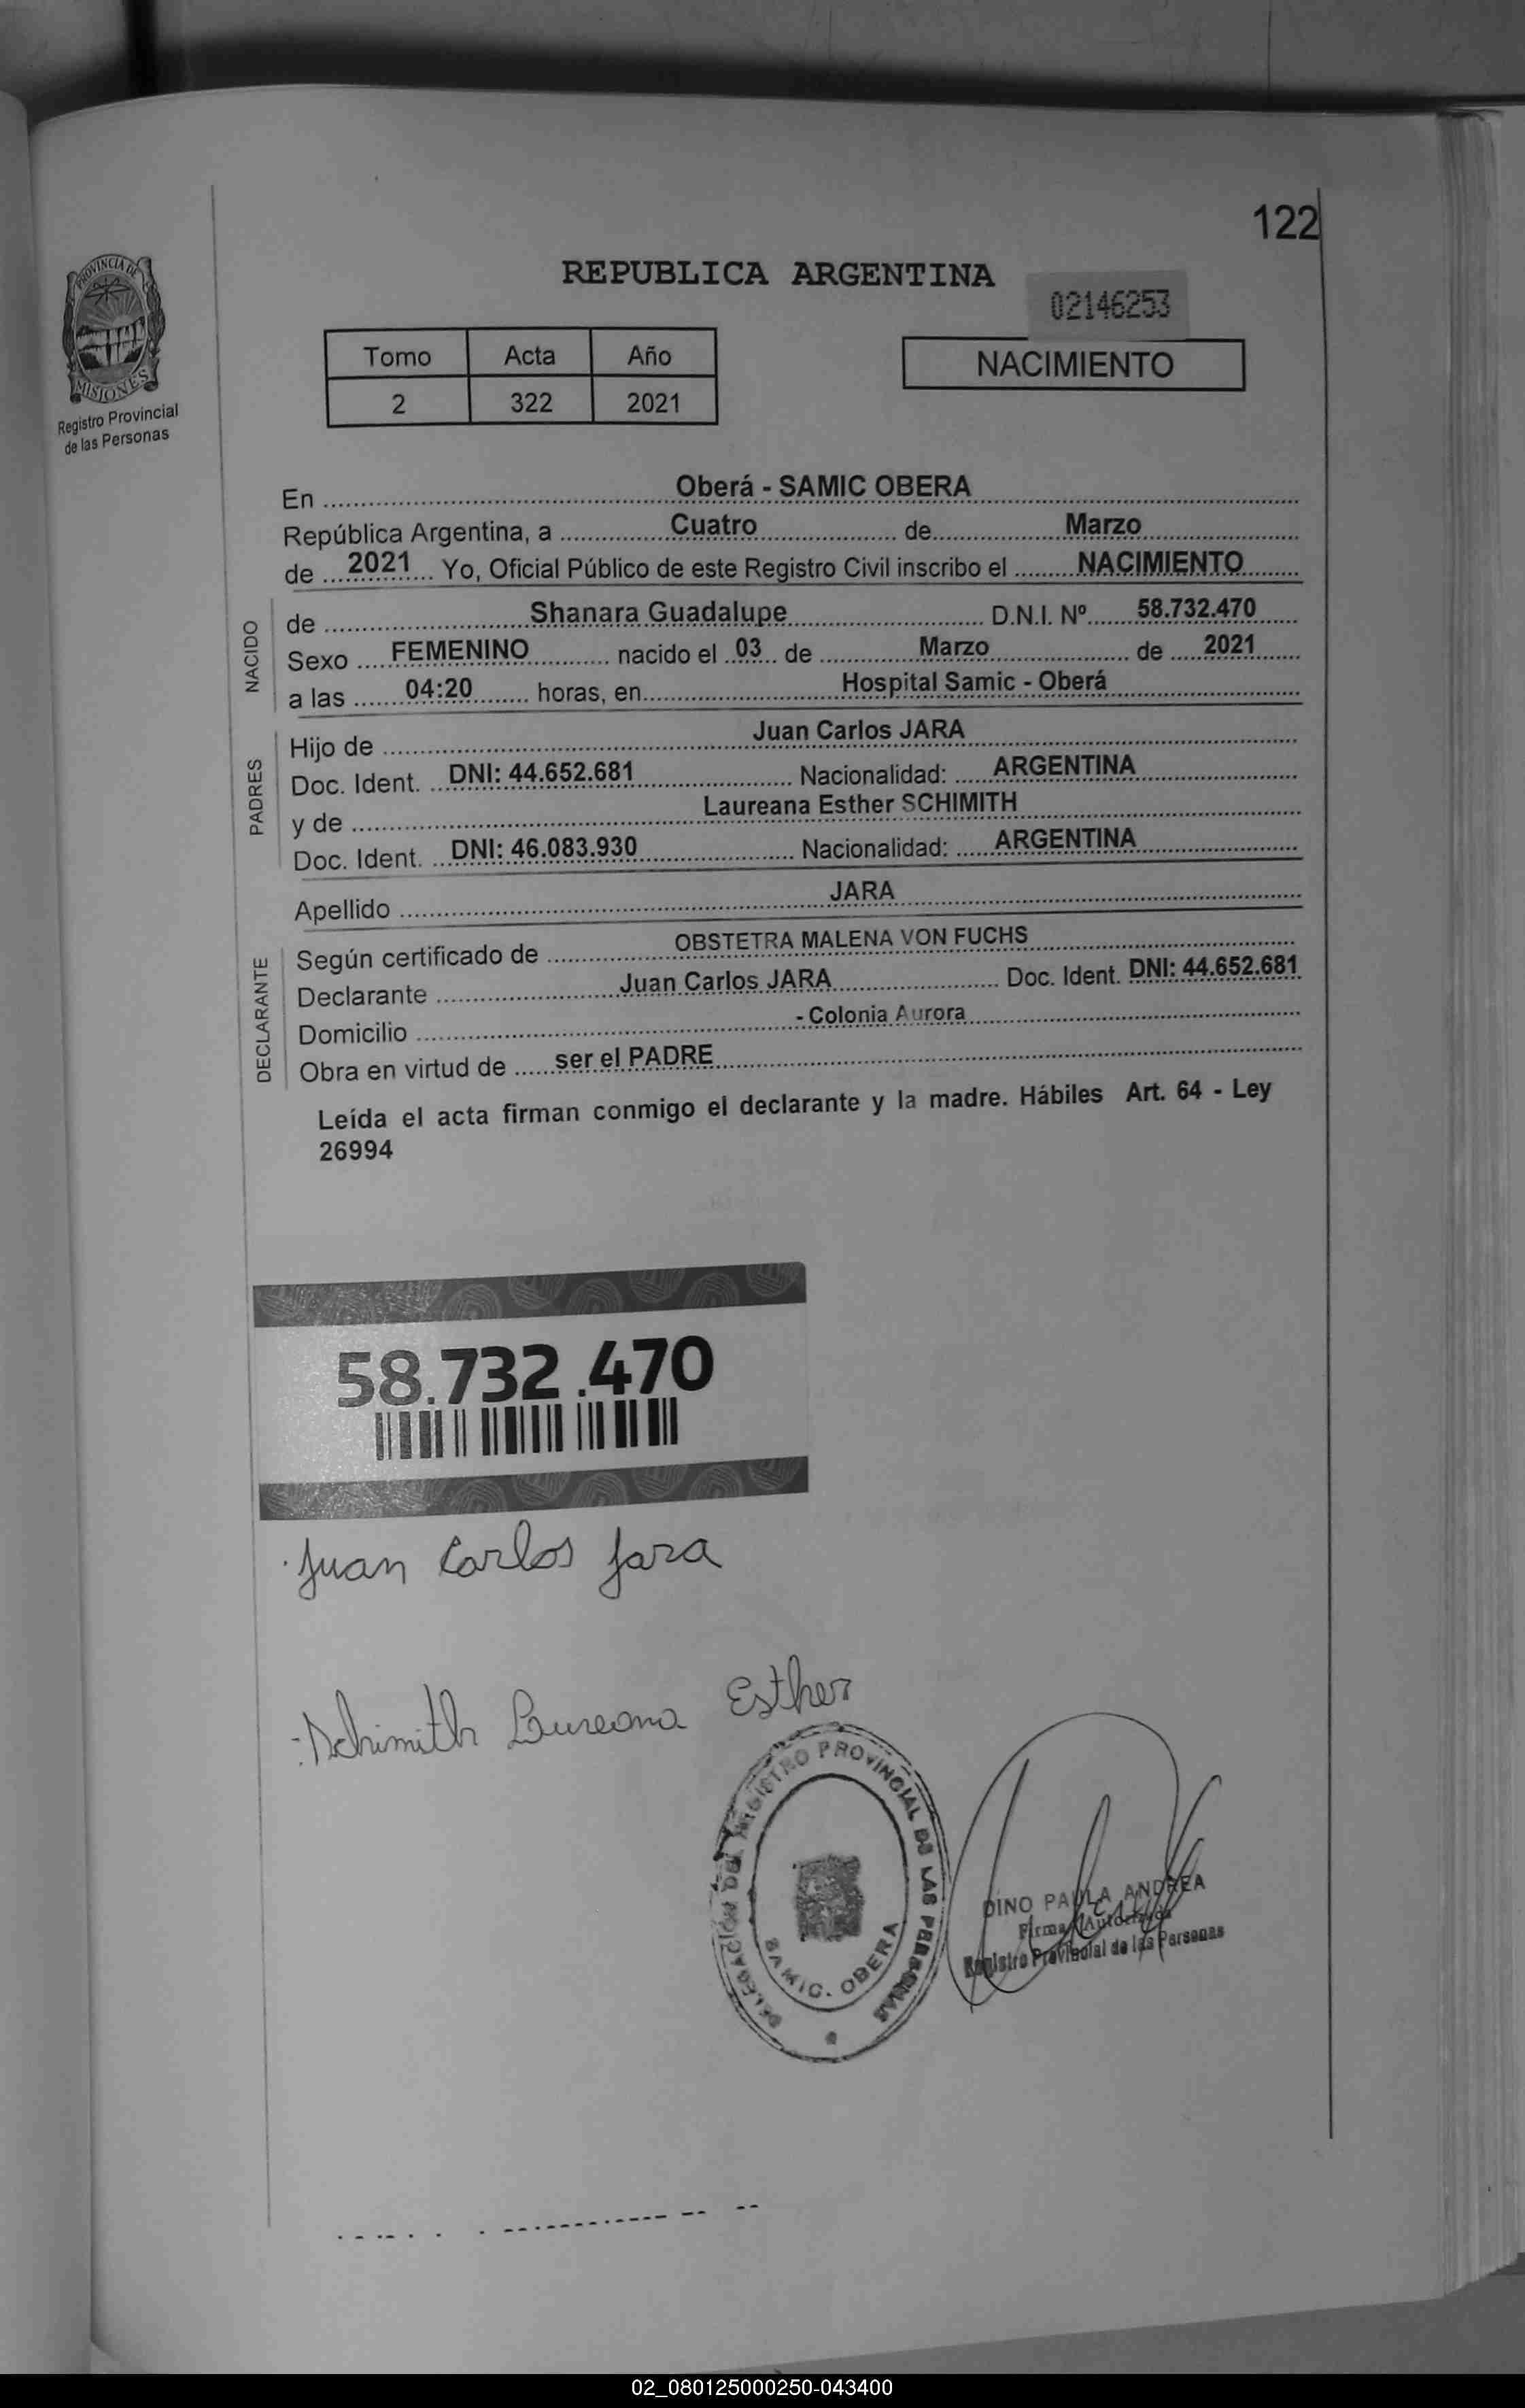 122
PROVINCIA DE
MISIONES
Registro Provincial
de las Personas
REPUBLICA ARGENTINA
02146253
Tomo Acta Año
2 322 2021
NACIMIENTO
En Oberá - SAMIC OBERA
República Argentina, a Cuatro de Marzo
de 2021 Yo, Oficial Público de este Registro Civil inscribo el NACIMIENTO
NACIDO
de Shanara Guadalupe D.N.I. Nº 58.732.470
Sexo FEMENINO nacido el 03 de Marzo de 2021
a las 04:20 horas, en Hospital Samic - Oberá
PADRES
Hijo de Juan Carlos JARA
Doc. Ident. DNI: 44.652.681 Nacionalidad: ARGENTINA
y de Laureana Esther SCHIMITH
Doc. Ident. DNI: 46.083.930 Nacionalidad: ARGENTINA
Apellido JARA
DECLARANTE
Según certificado de OBSTETRA MALENA VON FUCHS
Declarante Juan Carlos JARA Doc. Ident. DNI: 44.652.681
Domicilio - Colonia Aurora
Obra en virtud de ser el PADRE
Leída el acta firman conmigo el declarante y la madre. Hábiles Art. 64 - Ley
26994
58.732.470
Juan Carlos Jara
Schimith Laureana Esther
DELEGACION DEL REGISTRO PROVINCIAL DE LAS PERSONAS
SAMIC. OBERA
DINO PAULA ANDREA
Firma Autorizada
Registro Provincial de las Personas
02_080125000250-043400